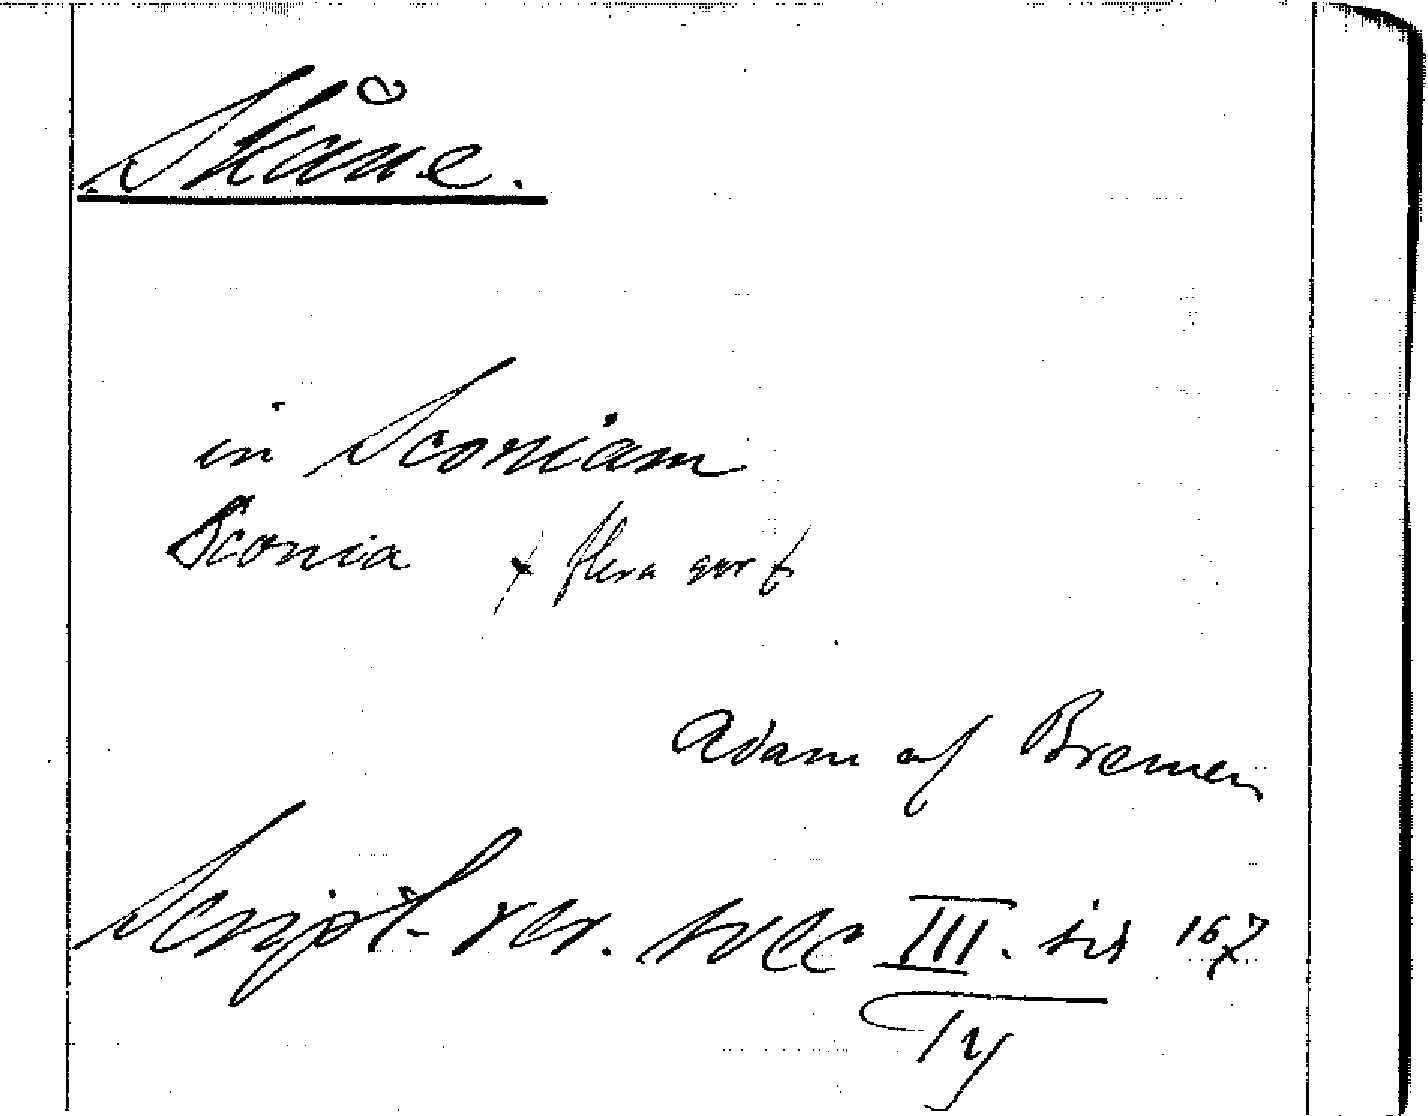 Skåne.
in Sconiam
Sconia + flera ggr +
Adam af Bremen
Script. rer. svec III. sid 167